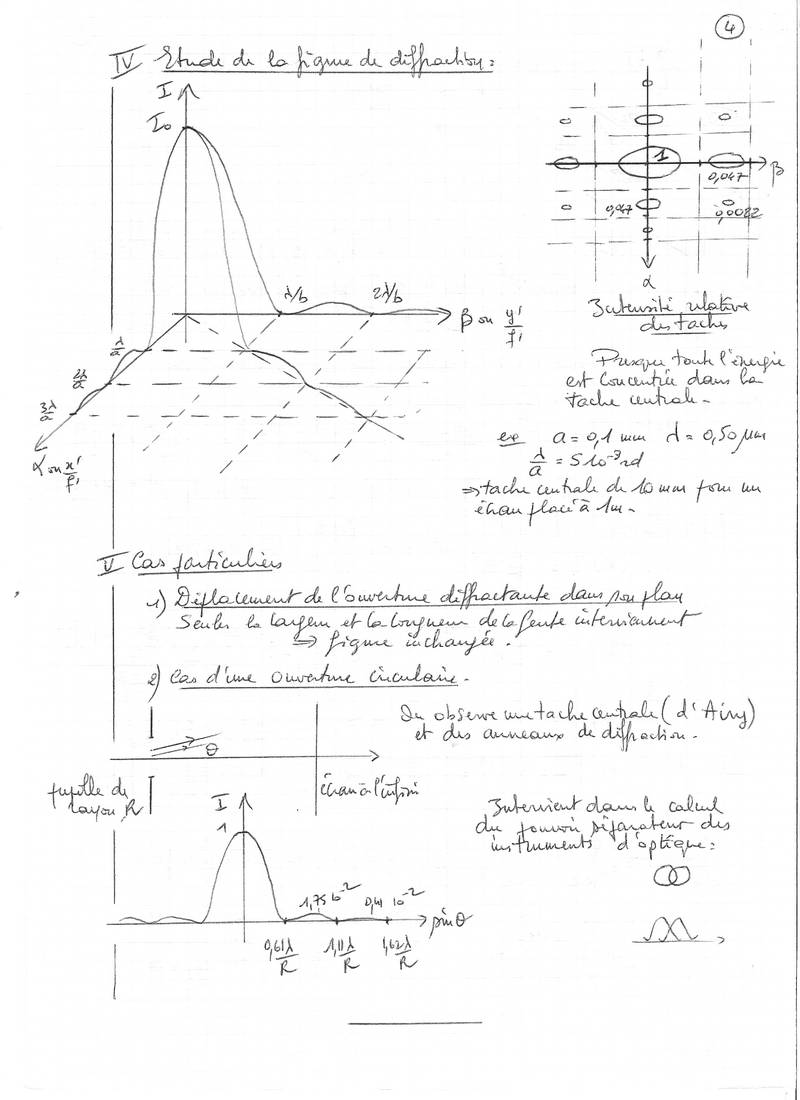 4
IV Etude de la figure de diffraction :
I
I₀
λ/b
2λ/b
β ou y'/f'
λ/a
2λ/a
3λ/a
α ou x'/f'
1
β
0,047
0,047
0,0022
α
Intensité relative
des taches
Presque toute l'énergie
est concentrée dans la
tache centrale -
ex a = 0,1 mm λ = 0,50 μm
λ/a = 5 10⁻³ rd
⇒ tache centrale de 10 mm pour un
écran placé à 1m -
V Cas particuliers
1) Déplacement de l'ouverture diffractante dans son plan
Seules la largeur et la longueur de la fente interviennent
⇒ figure inchangée .
2) Cas d'une ouverture circulaire -
On observe une tache centrale ( d'Airy)
et des anneaux de diffraction -
θ
pupille de
rayon R
écran à l'infini
I
1
1,75 10⁻²
0,41 10⁻²
sin θ
0,61λ/R
1,11λ/R
1,62λ/R
Intervient dans le calcul
du pouvoir séparateur des
instruments d'optique :